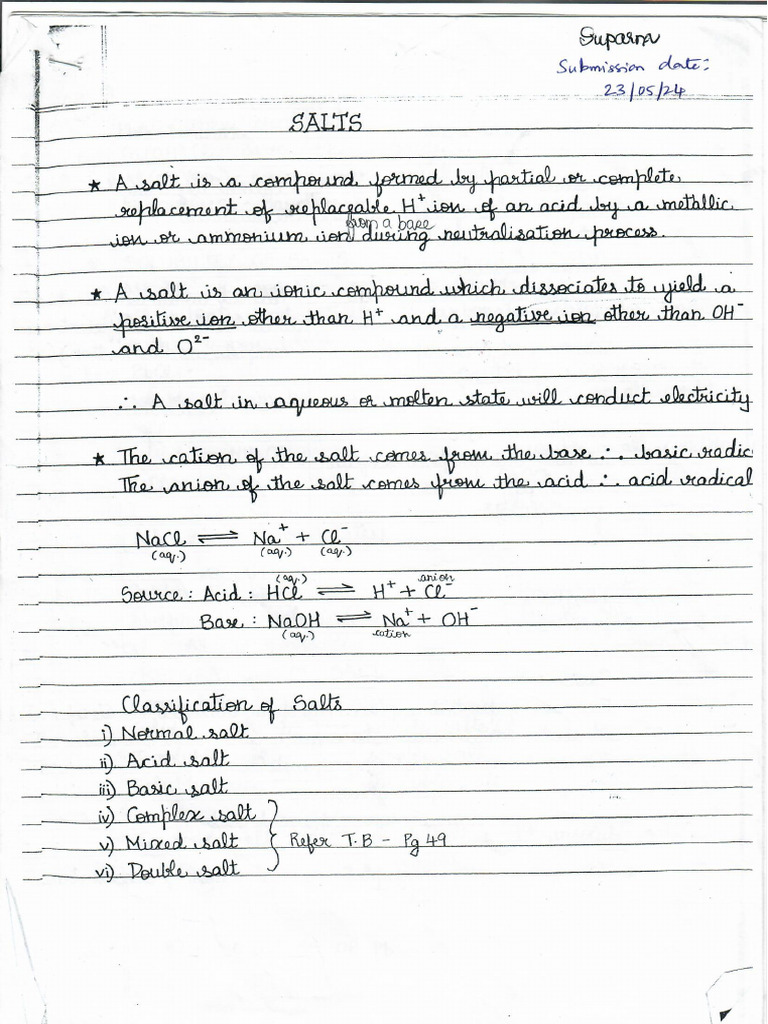 Suparna
Submission date:
23/05/24
SALTS
* A salt is a compound formed by partial or complete
replacement of replaceable H⁺ ion of an acid by a metallic
from a base
ion or ammonium ion during neutralisation process.
* A salt is an ionic compound which dissociates to yield a
positive ion other than H⁺ and a negative ion other than OH⁻
and O²⁻
∴ A salt in aqueous or molten state will conduct electricity
* The cation of the salt comes from the base ∴ basic radic
The anion of the salt comes from the acid ∴ acid radical
NaCl ⇌ Na⁺ + Cl⁻
(aq.) (aq.) (aq.)
(aq.) anion
Source : Acid : HCl ⇌ H⁺ + Cl⁻
Base : NaOH ⇌ Na⁺ + OH⁻
(aq.) cation
Classification of Salts
i) Normal salt
ii) Acid salt
iii) Basic salt
iv) Complex salt
v) Mixed salt } Refer T.B - Pg 49
vi) Double salt